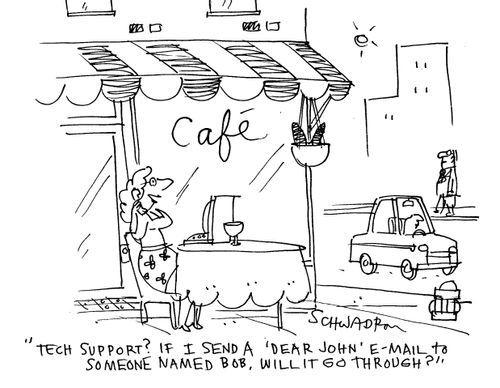 Café
SCHWADRON
"TECH SUPPORT? IF I SEND A 'DEAR JOHN' E-MAIL to
SOMEONE NAMED BOB, WILL IT GO THROUGH?"